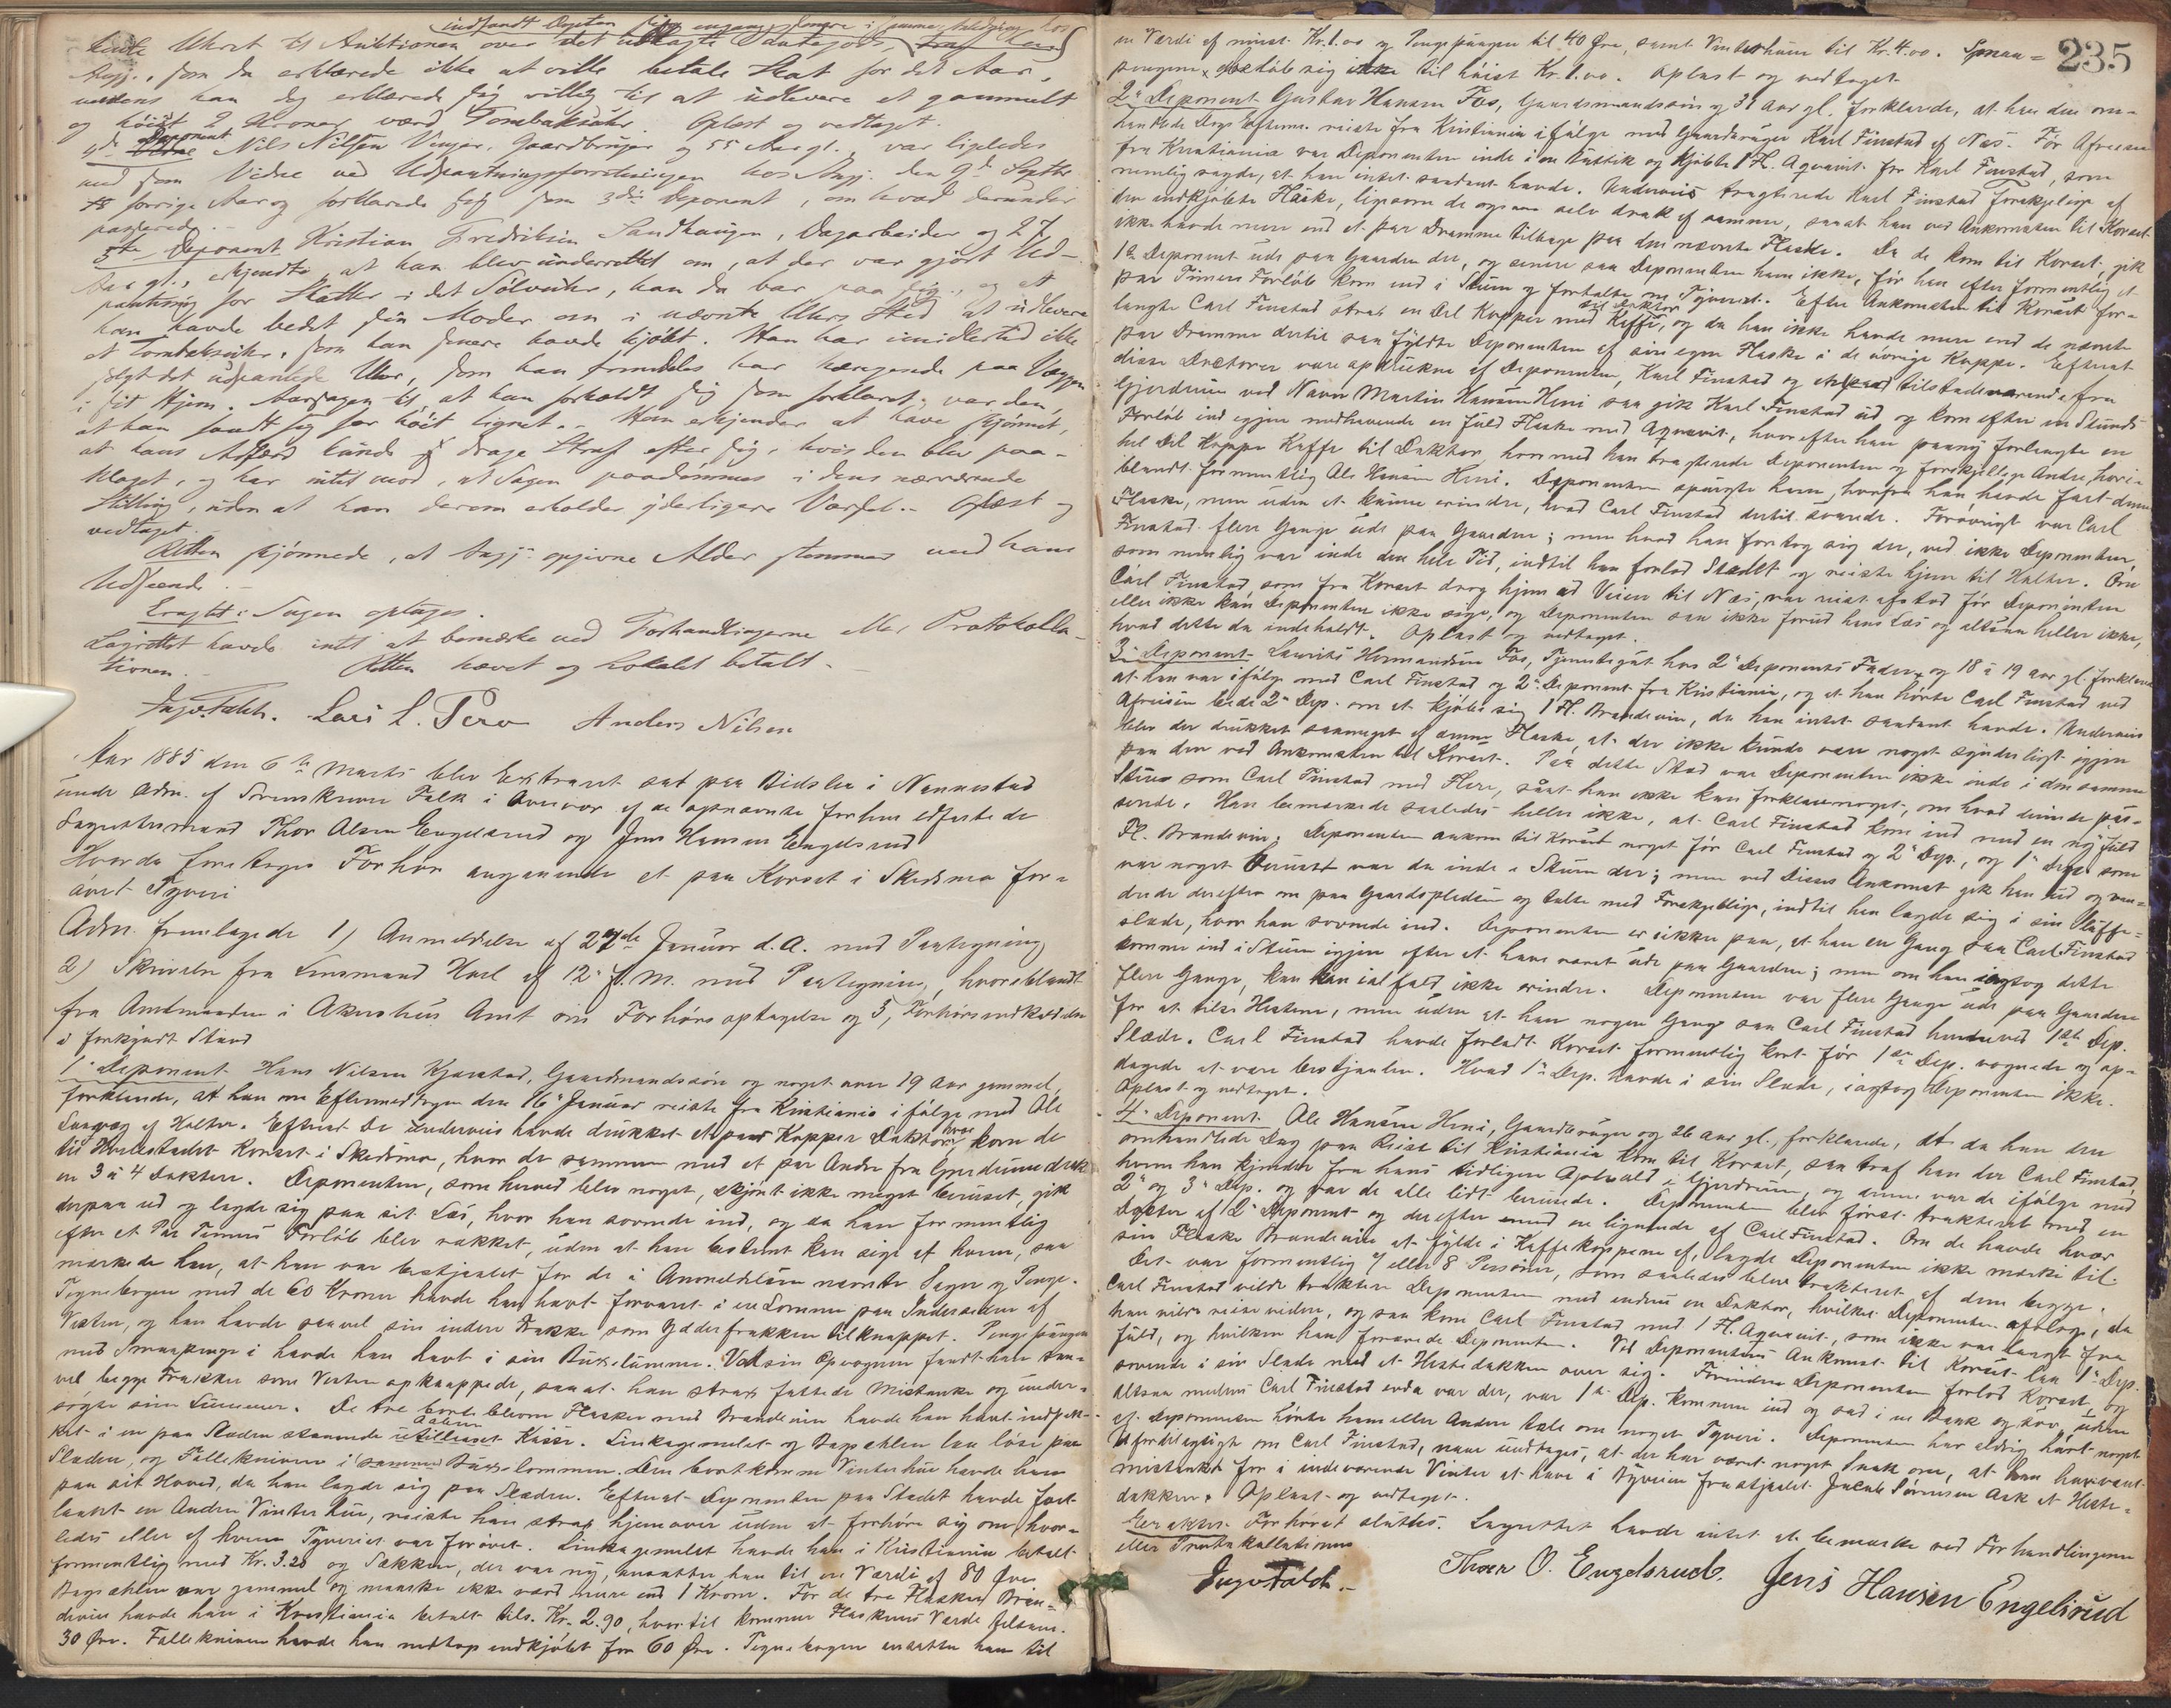 indfandt Deponten sig engang længre i samme Anledning hos
hente Uhret til Auktionen over det udlagte Pantegods,
Angj., som da erklærede ikke at ville betale Skat for det Aar,
medens han dog erklærede sig villig til at udlevere et gammelt
og høist 2 Kroner værd Tombaksuhr. Oplæst og vedtaget.
4de Deponent Nils Nilsen Vinger, Gaardbruger og 55 Aar gl. var ligeledes
med som Vidne ved Udpantningsforretningen hos Angj. den 9de Septbr
forrige Aar og forklarede sig som 3die Deponent, om hvad derunder
passerede.
5te Deponent Kristian Fredriksen Sandhaugen, Dagarbeider og 27
Aar gl., erkjendte at han blev underrettet om, at der var gjort Ud-
pantning for Skatter i det Sølvuhr, han da bar paa sig, og at
han havde bedt sin Moder om i nævnte Uhrs Sted at udlevere
et Tombaksuhr, som han senere havde kjøbt. Han har imidlertid ikke
solgt det udpantede Uhr, som han fremdeles har hængende paa Væggen
i sit Hjem. Aarsagen til at han forholdt sig som forklaret, var den,
at han fandt sig for høit lignet. Han erkjender at have skjønnet,
at hans Adfærd kunde drage Straf efter sig, hvis den blev paa-
klaget, og har intet imod, at Sagen paadømmes i dens nærværende
Stilling, uden at han derom erholder yderligere Varsel. Oplæst og
vedtaget.
Retten skjønnede, at Angj. opgivne Alder stemmer med hans
Udseende.
Eragtet: Sagen optages.
Lagrettet havde intet at bemærke ved Forhandlingerne eller Protokolla-
tionen. Retten hævet og Lokalet betalt.
Lars L. Pero Anders Nilsen
Aar 1885 den 6te Marts blev Extraret sat paa Bidslia i Nannestad
under Adm. af Sorenskriver Falk i Overvær af de opnævnte forhen edfæstede
Lagrettesmænd Thor Olsen Engelsrud og Jens Hansen Engelsrud
Hvorda foretoges Forhør angaaende et paa Korset i Skedsmo for-
øvet Tyveri
Adm. fremlagde 1) Anmeldelse af 27de Januar d. A. med Paategning
2) Skrivelse fra Lensmand Hael af 12te f. M. med Paategning, hvoriblandt
fra Amtmanden i Akershus Amt om Forhørs optagelse og 3, Forhørsindkaldelse
i forkyndt Stand
1ste Deponent Hans Nilsen Kjærstad, Gaardmandssøn og noget over 19 Aar gammel,
forklarede, at han om Eftermiddagen den 16de Januar reiste fra Kristiania i følge med Ole
af Holter. Efterat de underveis havde drukket et par Kopper Daktor hver, kom de
til Hvilestedet Korset i Skedsmo, hvor de sammen med et par Andre fra Gjerdrum drak
en 3 à 4 Daktere. Deponenten, som herved blev noget, skjønt ikke meget beruset, gik
derpaa ud og lagde sig paa sit Læs, hvor han sovnede ind, og da han formentlig
efter et Par Timers Forløb blev vækket, uden at han bestemt kan sige af hvem, saa
mærkede han, at han var bestjaalet for de i Anmeldelsen nævnte Sager og Penge.
Tegnebogen med de 60 Kroner havde han havt forvaret i en Lomme paa Indersiden af
Vesten, og han havde saavel sin indere Frakke som Yderfrakken tilknappet. Pengepungen
med Smaapenge i havde han havt i sin Buxelomme. Ved sin Opvognen fandt han saa-
vel begge Frakker som Vesten opknappede, saaat han strax fattede Mistanke og under-
søgte sine Lummer. De tre bortblevne Flasker med Brændevin havde han havt indpak-
ket i en paa Slæden staaende aaben Kasse. Linkagemelet og Bagsælen laa løse paa
Slæden, og Follekniven i Buxelommen. Den bortkomne Vinterhue havde han
paa sit Hoved, da han lagde sig paa Slæden. Efterat Deponenten paa Stedet havde faat
laant en Anden Vinterhue, reiste han strax hjemover uden at forhøre sig om, hvor-
ledes eller af hvem Tyveriet var forøvet. Linkagemelet havde han i Kristiania betalt
formentlig med Kr. 3.20 og Sækken, der var ny, ansatte han til en Værdi af 80 Øre.
Bagsælen var gammel og maaske ikke værd mere end 1 Krone. For de tre Flasker Bræn-
devin havde han i Kristiania betalt tils. Kr. 2.90, hvortil kommer Flaskernes Værdi tilsam.
30 Øre. Follekniven havde han nedtop indkjøbt for 60 Øre. Tegnebogen ansatte han til
235
en Værdi af mindst Kr. 1.00 og Pengepungen til 40 Øre, samt Vinterhuen til Kr. 4.00. Smaa-
pengene beløb sig til høist Kr. 1.00. Oplæst og vedtaget
2den Deponent Gustav Hansen Fos, Gaardmandssøn og 31 Aar gl. forklarede, at han den om-
handlede Dags Efterm. reiste fra Kristiania i følge med Gaardbruger Karl Finstad af Næs. Før Afreisen
fra Kristiania var Deponenten inde i en Butik og kjøbte 1 Fl. Aqvavit for Karl Finstad, som
nemlig sagde, at han intet saadant havde. Underveis tragterede Karl Finstad forskjellige af
den indkjøbte Flaske, ligesom de ogsaa selv drak af samme, saaat han ved Ankomsten til Korset
ikke havde mere end et par Dramme tilbage paa den nævnte Flaske. Da de kom til Korset, gik
1ste Deponent ude paa Gaarden der, og senere saa Deponenten ham ikke, før han efter formentlig et
par Timers Forløb kom ind i Stuen og fortalte om Tyveriet. Efter Ankomsten til Korset for-
langte Carl Finstad strax en Del Kopper med Kaffe til Daktor, og da han ikke havde mere end de nævnte
par Dramme dertil saa fyldte Deponenten af sin egen Flaske i de øvrige Koppe. Efterat
disse Doctorer vare opdrukne af Deponenten, Karl Finstad og en tilstedeværende fra
Gjerdrum ved Navn Martin Hansen Heni saa gik Karl Finstad ud og kom efter en Stunds
Forløb ind igjen medhavende en fuld Flaske med Aqvavit, hvorefter han paany forlangte en
hel Del Koppe Kaffe til Daktor, hvormed han tragterede Deponenten og forskjellige Andre, hvori-
blandt formentlig Ole Hansen Heni. Deponenten spurgte ham, hvorfra han havde faat denne
Flaske, men uden at kunne erindre, hvad Carl Finstad dertil svarede. Forøvrigt var Carl
Finstad flere Gange ude paa Gaarden; men hvad han foretog sig der, ved ikke Deponenten,
som nemlig var inde den hele Tid, indtil han forlod Stedet og reiste hjem til Holter. Om
Carl Finstad, som fra Korset drog hjem ad Veien til Næs, var reist afsted før Deponenten
eller ikke kan Deponenten ikke sige, og Deponenten saa ikke forud hans Læs og altsaa heller ikke,
hvad dette da indeholdt. Oplæst og vedtaget.
3die Deponent Laurits Hermandsen Fos, Tjenestegut hos 2den Deponents Fader og 18 à 19 Aar gl. forklarede
at han var i følge med Carl Finstad og 2den Deponent fra Kristiania, og at han hørte Carl Finstad ved
Afreisen bede 2den Dep. om at kjøbe sig 1 Fl. Brændevin, da han intet saadant havde. Underveis
blev der drukket saameget af denne Flaske, at der ikke kunde være noget synderligt igjen
paa den ved Ankomsten til Korset. Paa dette Sted var Deponenten ikke inde i den samme
Stue som Carl Finstad med Flere, saaat han ikke kan forklare noget, om hvad derinde pas-
serede. Han bemærkede saaledes heller ikke, at Carl Finstad kom ind med en ny fuld
Fl. Brændevin. Deponenten ankom til Korset noget før Carl Finstad og 2den Dep., og 1ste Dep. som
var noget beruset var da inde i Stuen der; men ved Disses Ankomst gik han ud og van-
drede derefter om paa Gaardspladsen og talte med Forskjellige, indtil han lagde sig i sin Sluffe-
slæde, hvor han sovnede ind. Deponenten er sikker paa, at han en Gang saa Carl Finstad
komme ind i Stuen igjen efter at have været ude paa Gaarden; men om han iagtog dette
flere Gange, kan han ialfald ikke erindre. Deponenten var flere Gange ude paa Gaarden
for at tilse Hestene, men uden at han nogen Gang saa Carl Finstad henne ved 1ste Dep.
Slæde. Carl Finstad havde forladt Korset formentlig kort før 1ste Dep. vognede og op-
dagede at være bestjaalen. Hvad 1ste Dep. havde i sin Slæde, iagtog Deponenten ikke.
Oplæst og vedtaget.
4de Deponent Ole Hansen Heni, Gaardbruger og 26 Aar gl., forklarede, at da han den
omhandlede Dag paa Reise til Kristiania kom til Korset, saa traf han der Carl Finstad,
hvem han kjendte fra hans tidligere Ophold i Gjerdrum, og denne var da i følge med
2den og 3die Dep. og var de alle lidt berusede. Deponenten blev først trakteret med en
Dokter af 2den Deponent og derefter med en lignende af Carl Finstad. Om de havde hver
sin Flaske Brændevin at fylde i Kaffekopperne af, lagde Deponenten ikke mærke til.
Det var formentlig 7 eller 8 Personer, som saaledes blev trakteret af dem begge.
Carl Finstad vilde traktere Deponenten med endnu en Daktor, hvilket Deponenten afslog, da
han vilde reise videre, og saa kom Carl Finstad med 1 Fl. Aqvavit, som ikke var langt fra
fuld, og hvilken han forærede Deponenten. Ved Deponentens Ankomst til Korset laa 1ste Dep.
sovende i sin Slæde med et Hestedækken over sig. Forinden Deponenten forlod Korset, og
altsaa medens Carl Finstad endda var der, var 1ste Dep. kommen ind og sad i en Bænk og sov, uden
at Deponenten hørte ham eller Andre tale om noget Tyveri. Deponenten har aldrig hørt noget
ufordelagtigt om Carl Finstad, naar undtages, at der har været noget Snak om, at han har været
mistænkt for i indeværende Vinter at have i Byveien frastjaalet Jacob Sørensen Ask et Heste-
dækken. Oplæst og vedtaget.
Eragtet: Forhøret sluttes. Lagrettet havde intet at bemærke ved Forhandlingerne
eller Protokollationen
Thorer O. Engelsrud. Jens Hansen Engelsrud